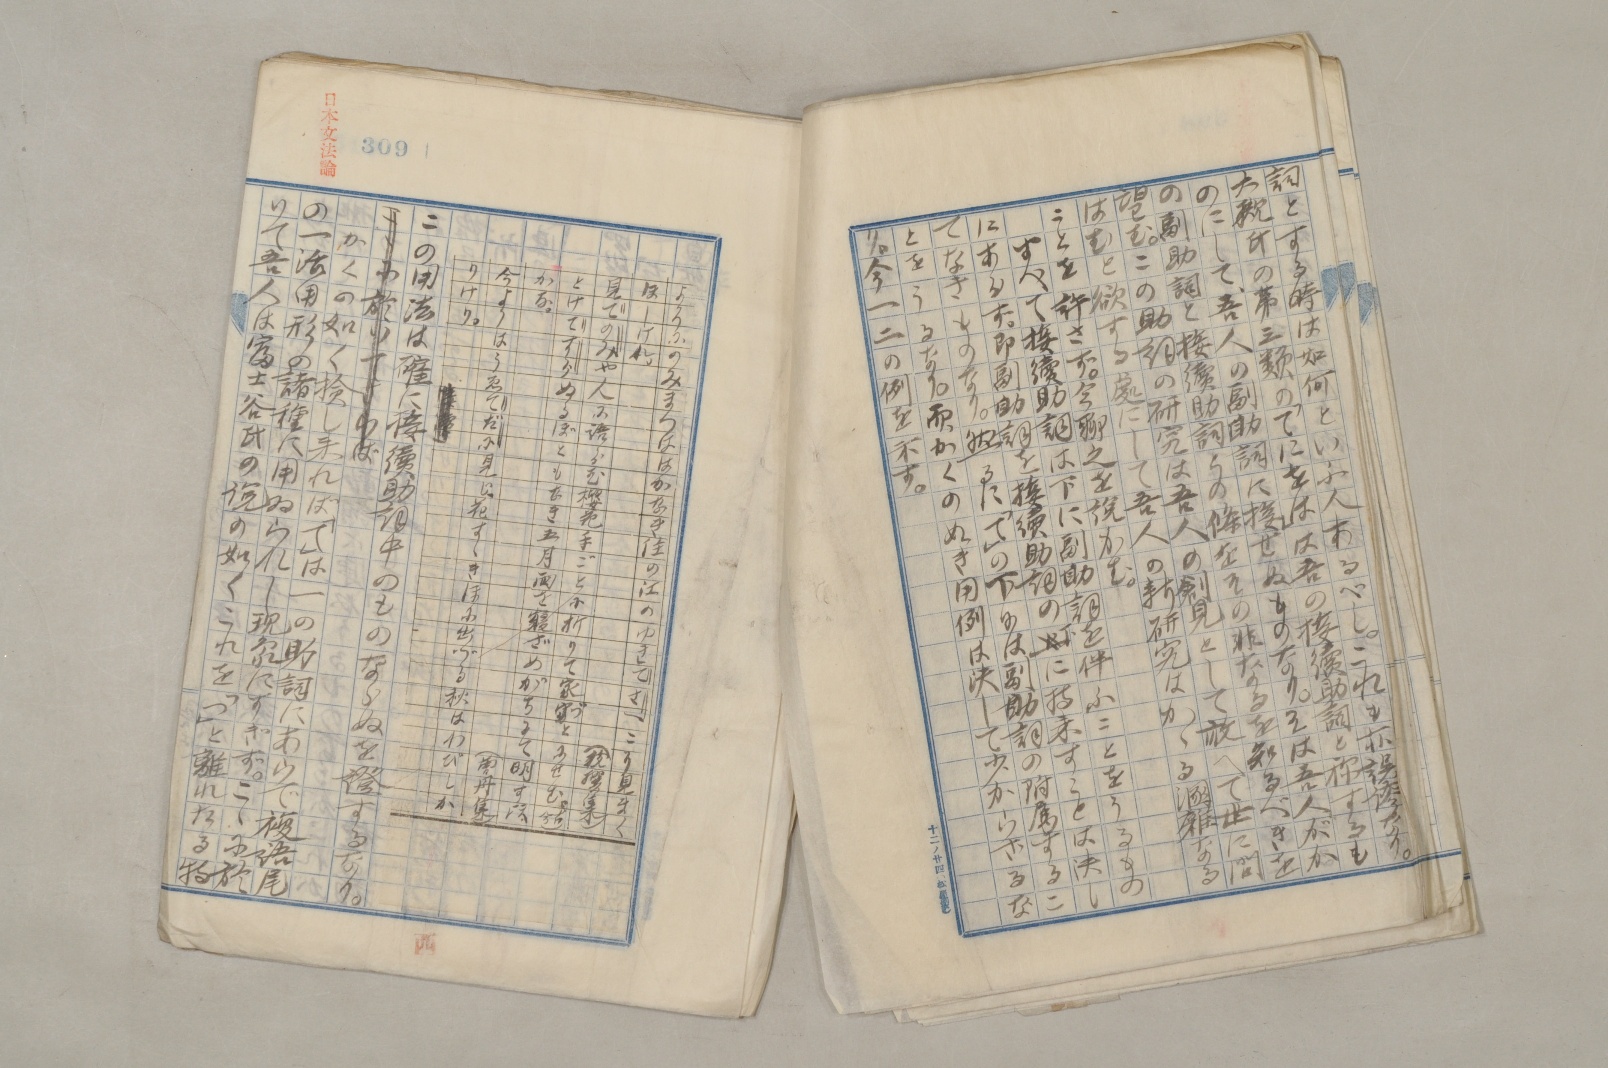 詞とする時は如何といふ人あるべし。これも亦誤謬なり。
大槻氏の第三類のてにをはは吾の接續助詞と称するも
のにして、吾人の副助詞に接せぬものなり。そは吾人がか
の副助詞と接續助詞との條をその非なるを知るべきを
望む。この助詞の研究は吾人の創見として敢へて世に問
はむと欲する處にして吾人の新研究はかゝる濫雑なる
ことを許さず。今聊之を説かむ。
すべて接續助詞は下に副助詞を伴ふことをうるもの
にあらず。即副助詞を接續助詞の下に持来すことは決し
てなきものなり。然るに「で」の下には副助詞の附属するこ
とをうるなり。而かくのぬき用例は決して少からざるな
り。今一二の例を示す。
日本文法論
309
ほしけれ。
見でのみや人に語らむ櫻花手ごとに折りて家づとにせむ
とけてすらぬるほともなき五月雨を寝ざめがちにて明す
かな。
今よりはうゑてだに見じ花すゝきほに出づる秋はわびしか
りけり。
この用法は確に接續助詞中のものならぬを證するなり。
かくの如く検し来れば「で」は一の助詞にあらで複語尾
の一活用形の諸種に用ゐられし現象にすぎず。こゝに於
いて吾人は富士谷氏の説の如くこれを「ず」と離れたる特
十二ノ廿四
西